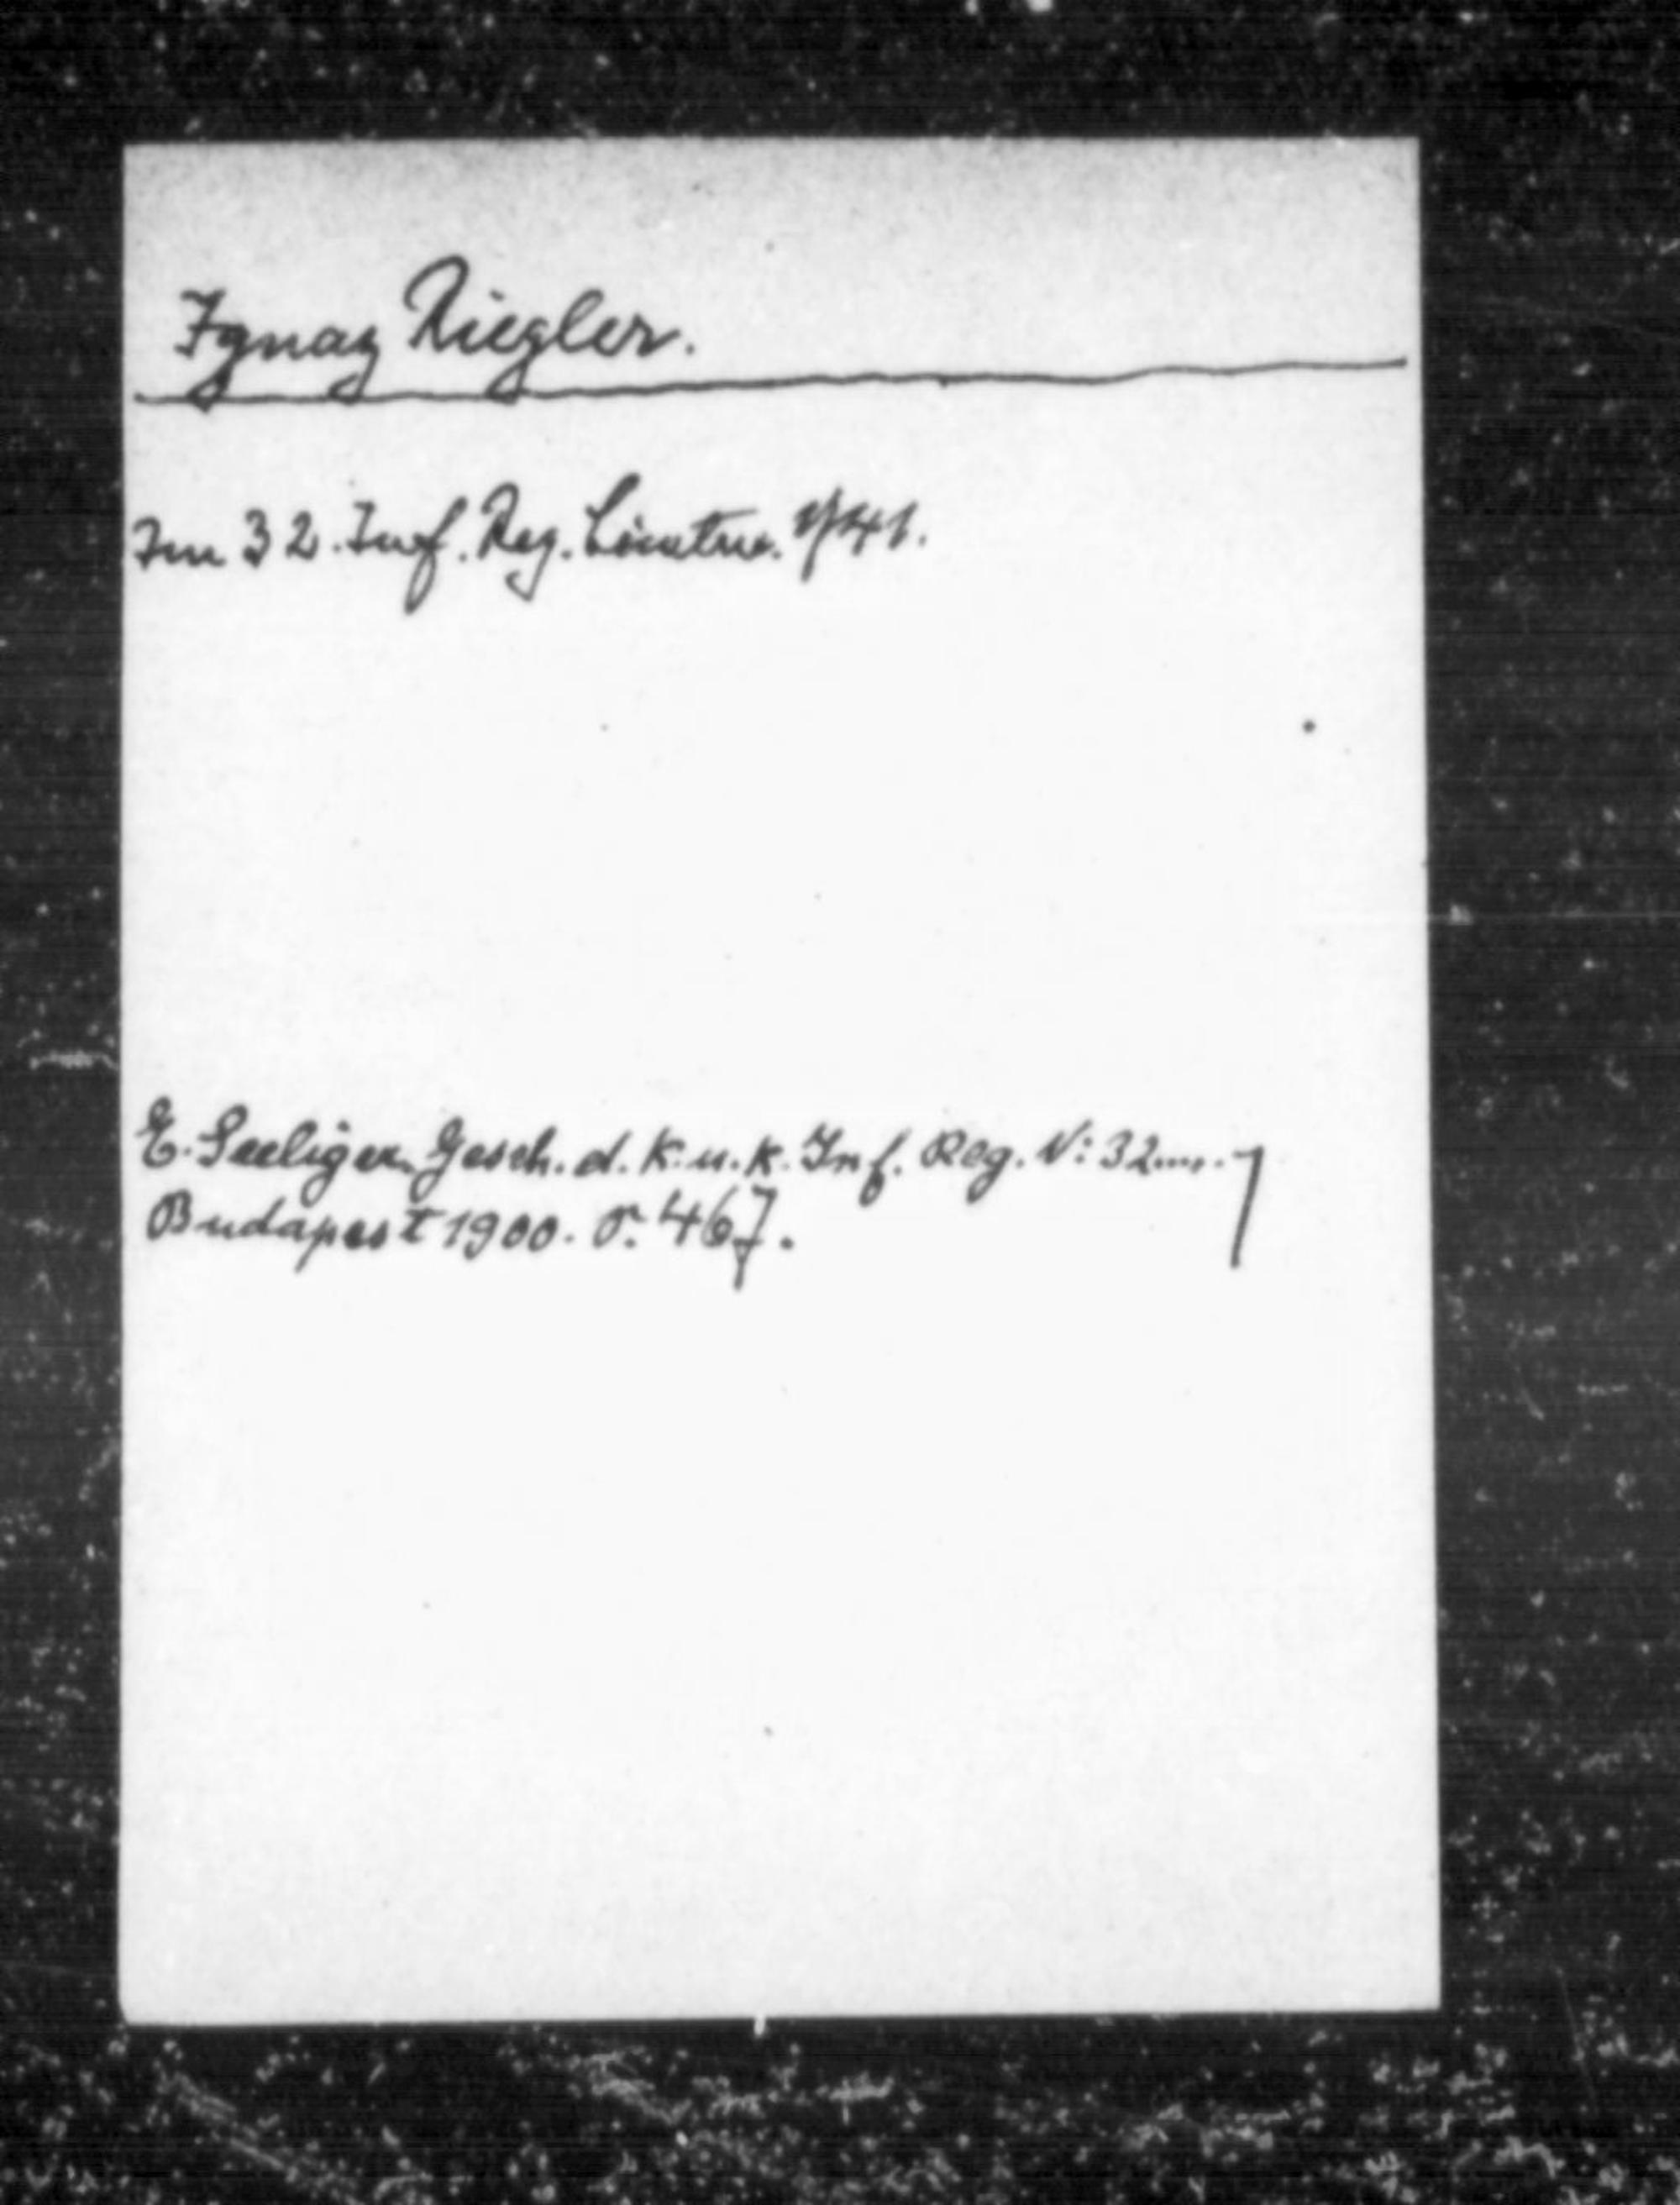 Ignaz Riegler.
Im 32. Inf. Reg. Lieutn. 1741.
E. Seeliger Gesch. d. K. u. K. Inf. Reg. N: 32....
Budapest 1900. S. 467.